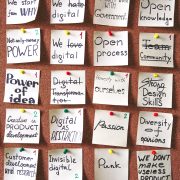 We start
from WHY
We hack
digital
with
Government
Open
knowledge
Not only money
POWER
We love
digital
Open
process
Team
Community
Power of
idea
Digital
Transformation
with
ourselves
Strong
Design
Skills
Creative
PRODUCT
DEVELOPMENT
Digital
AS
Passion
Diversity
of
opinions
Customer
development
AND RESPECT
Invisible
digital
Punk
WE DON'T
MAKE
USELESS
PRODUCT